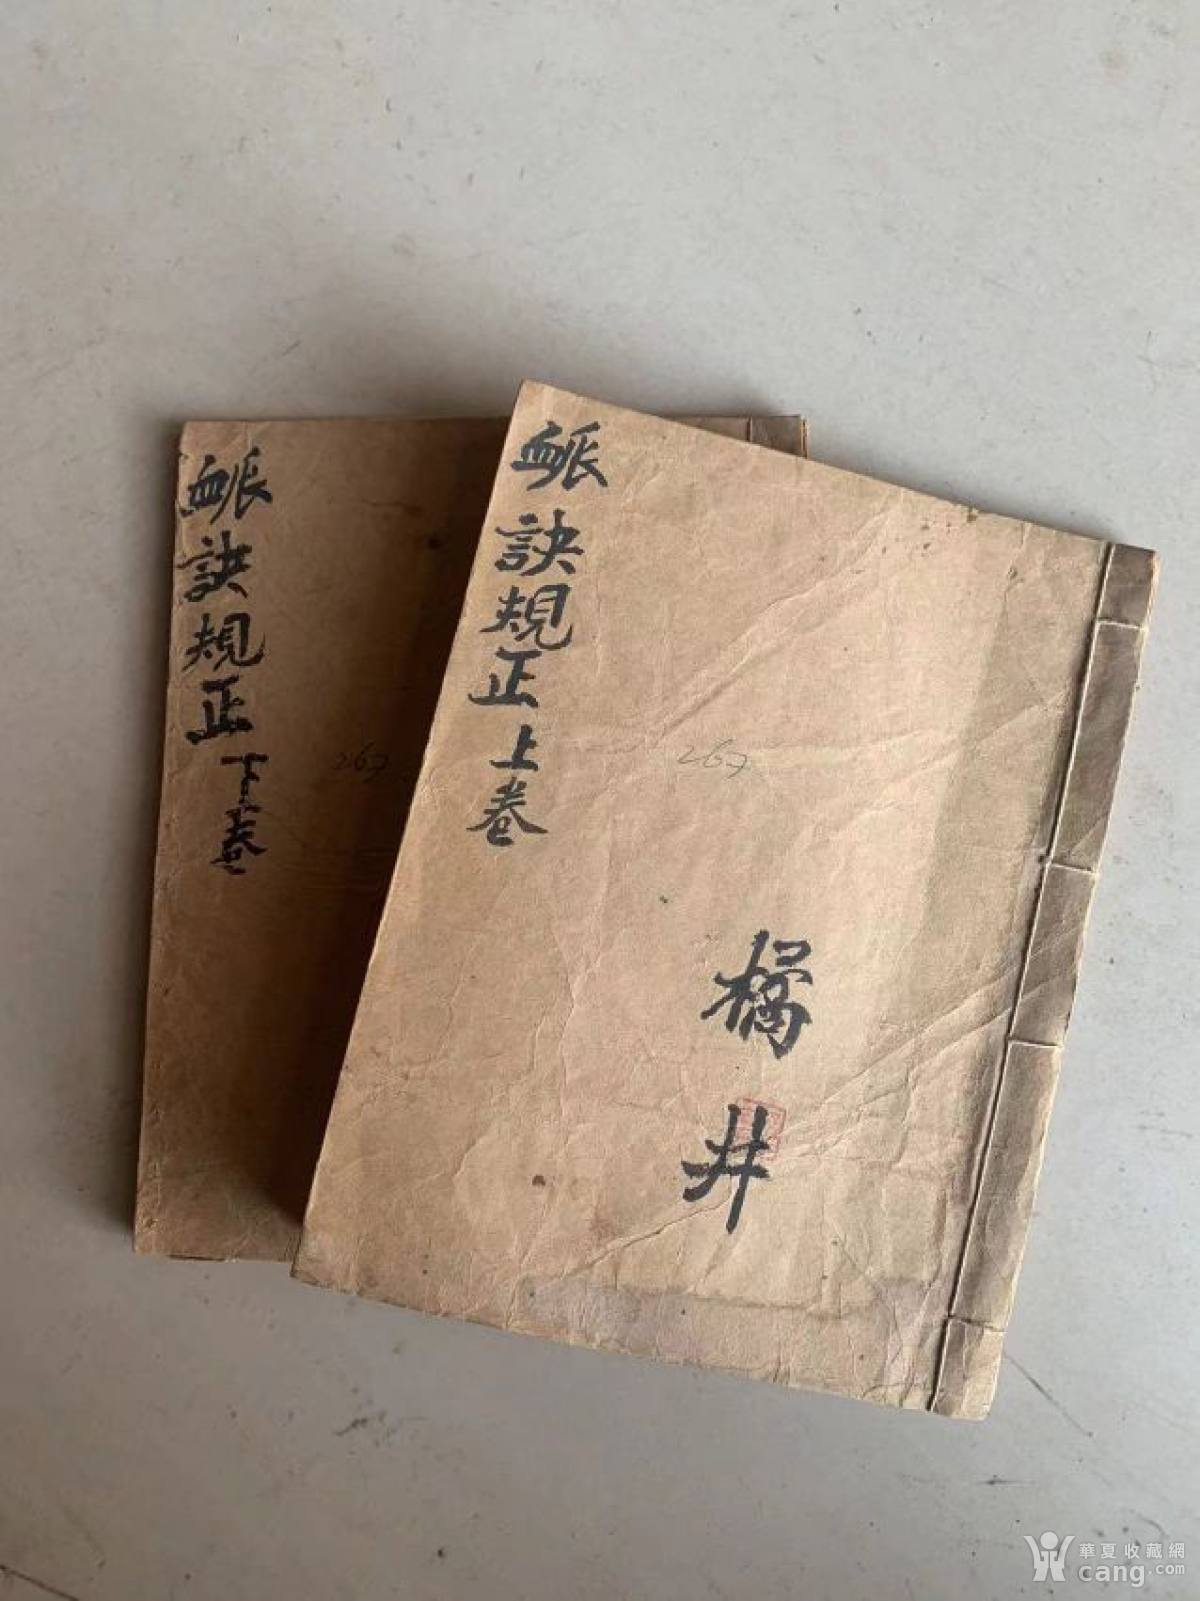 衇訣規正下卷
267
衇訣規正上卷
267
橘井
華夏收藏網
cang.com